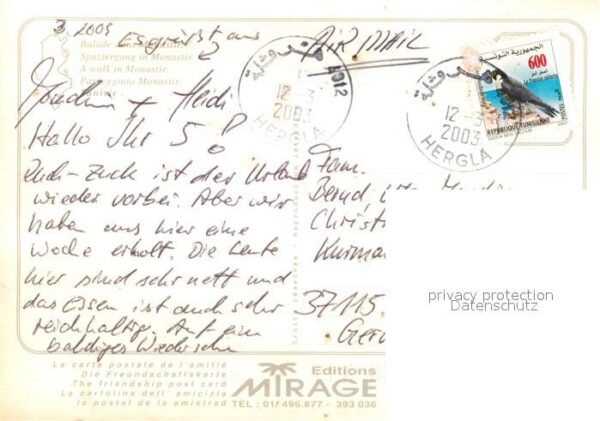 3 2003
Es grüßt aus
AIR MAIL
Balade dans Monastir.
Spaziergang in Monastir.
A walk in Monastir.
Passeggiata Monastir.
Tunisie.
Joachim + Heidi
Hallo Ihr 5!
Ruck-Zuck ist der Urlaub
wieder vorbei. Aber wir
haben uns hier eine
Woche erholt. Die Leute
hier sind sehr nett und
das Essen ist auch sehr
reichhaltig. Auf ein
baldiges Wiedersehn
4012
12-3
2003
HERGLA
12-3
2003
HERGLA
الجمهورية التونسية
600
REPUBLIQUE TUNISIENNE
Fam.
Bernd,
Christ
Kurma
37115
Ger
privacy protection
Datenschutz
La carte postale de l'amitié
Die Freundschaftskarte
The friendship post card
La cartolina dell' amicizia
la postal de la amistad
Editions
MIRAGE
TEL : 01/ 496.877 - 393 036